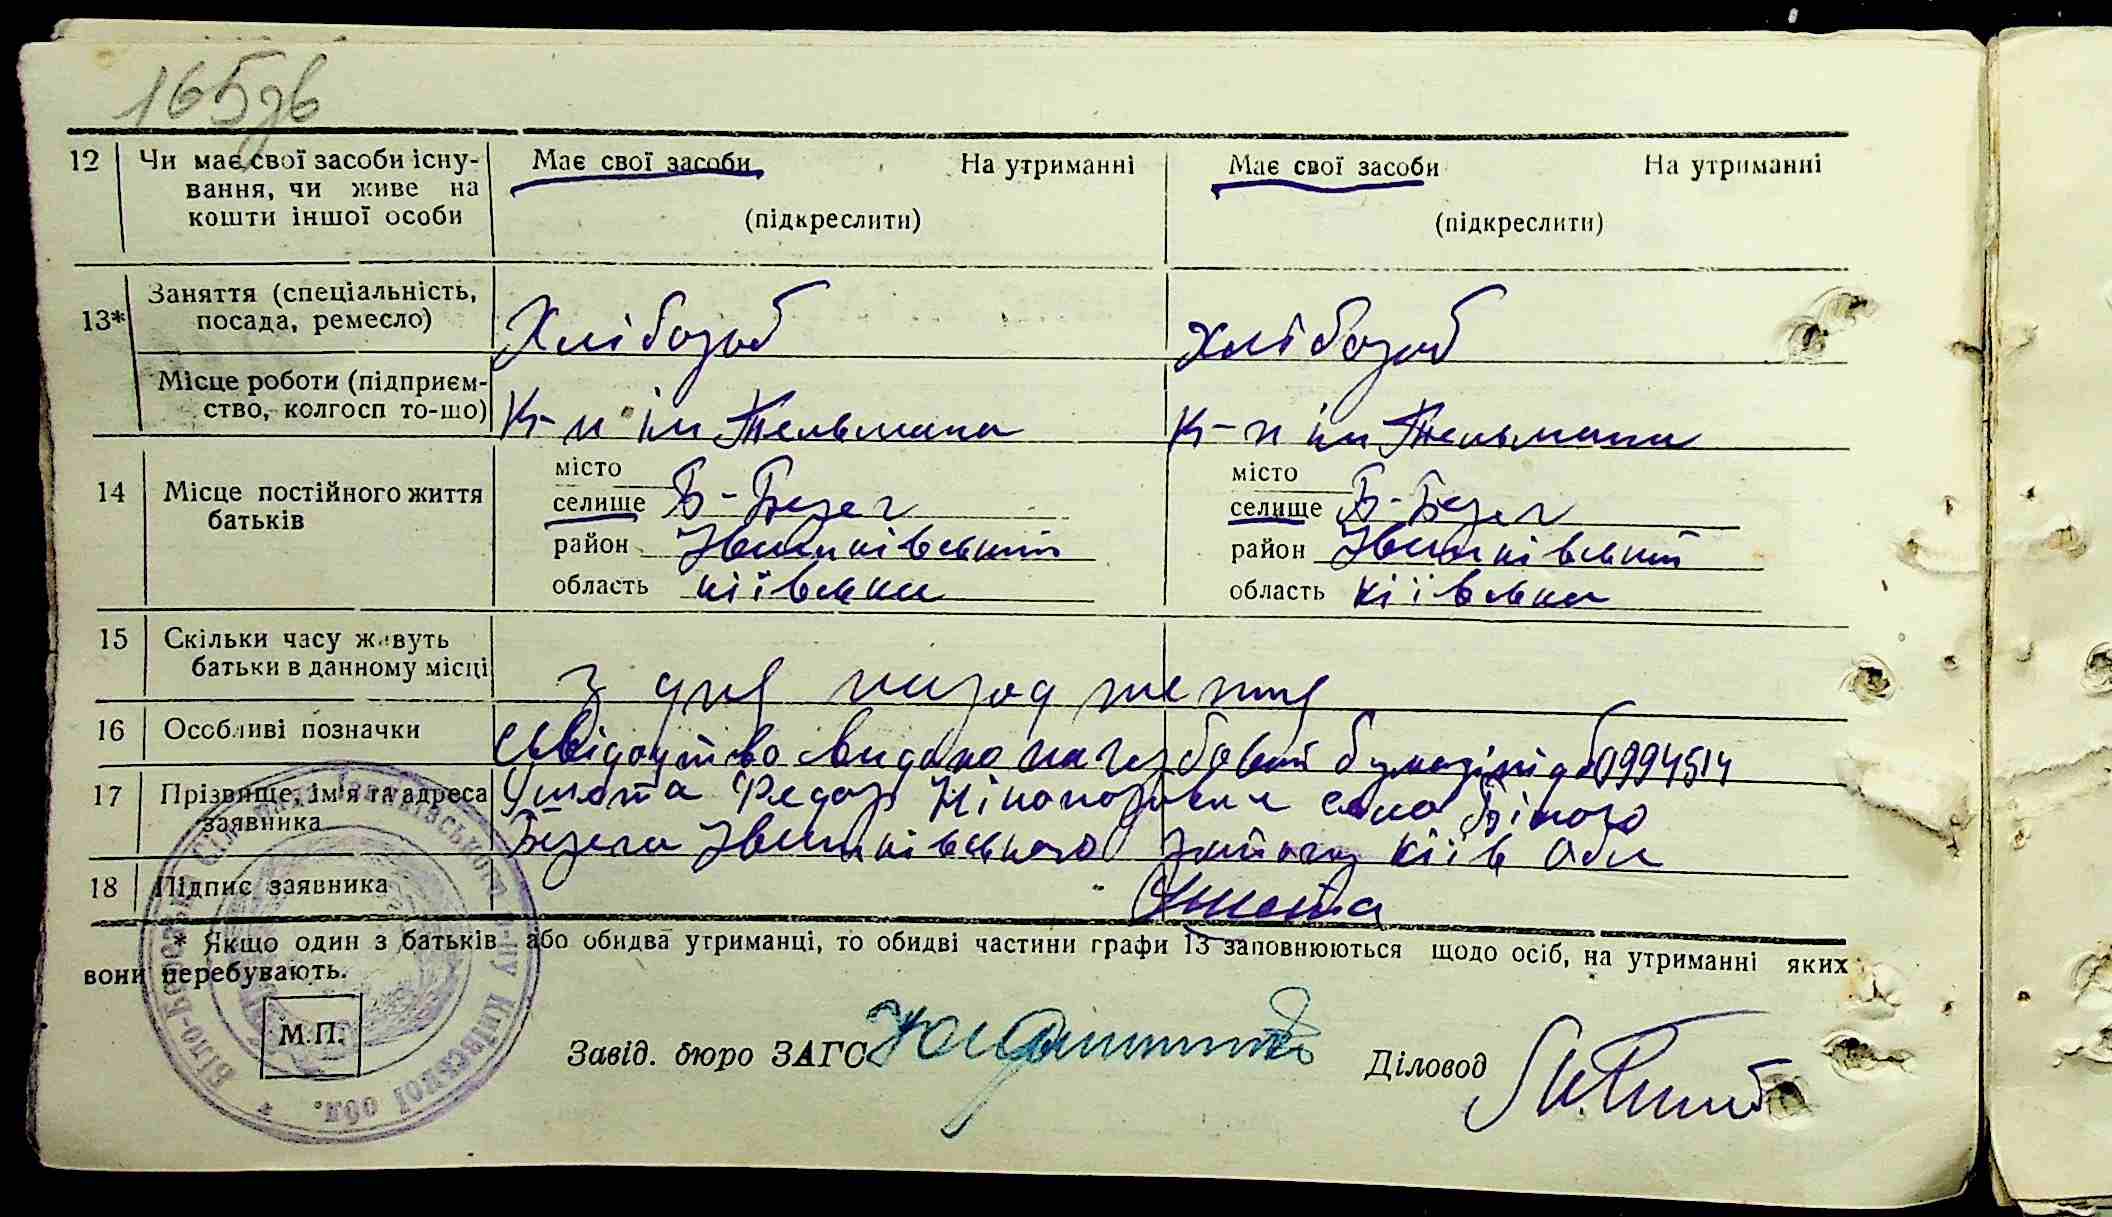 165зв
12 Чи має свої засоби існу- Має свої засоби На утриманні Має свої засоби На утриманні
вання, чи живе на
кошти іншої особи (підкреслити) (підкреслити)
13* Заняття (спеціальність,
посада, ремесло) Хлібороб хлібороб
Місце роботи (підприєм-
ство, колгосп то-що) К-п ім Тельмана К-п ім Тельмана
14 Місце постійного життя
батьків
місто місто
селище Б-Берег селище Б-Берег
район Іванківський район Іванківський
область київська область київська
15 Скільки часу живуть
батьки в данному місці з дня народження
16 Особливі позначки Свідоцтво видано на гербовій бумазі 0994514
17 Прізвище, ім'я та адреса
заявника Федор село Білого
Берега Іванківського району Київ обл
18 Підпис заявника
* Якщо один з батьків або обидва утриманці, то обидві частини графи 13 заповнюються щодо осіб, на утриманні яких
вони перебувають.
М.П.
Завід. бюро ЗАГС Діловод
Іванківського р-ну Київської обл.